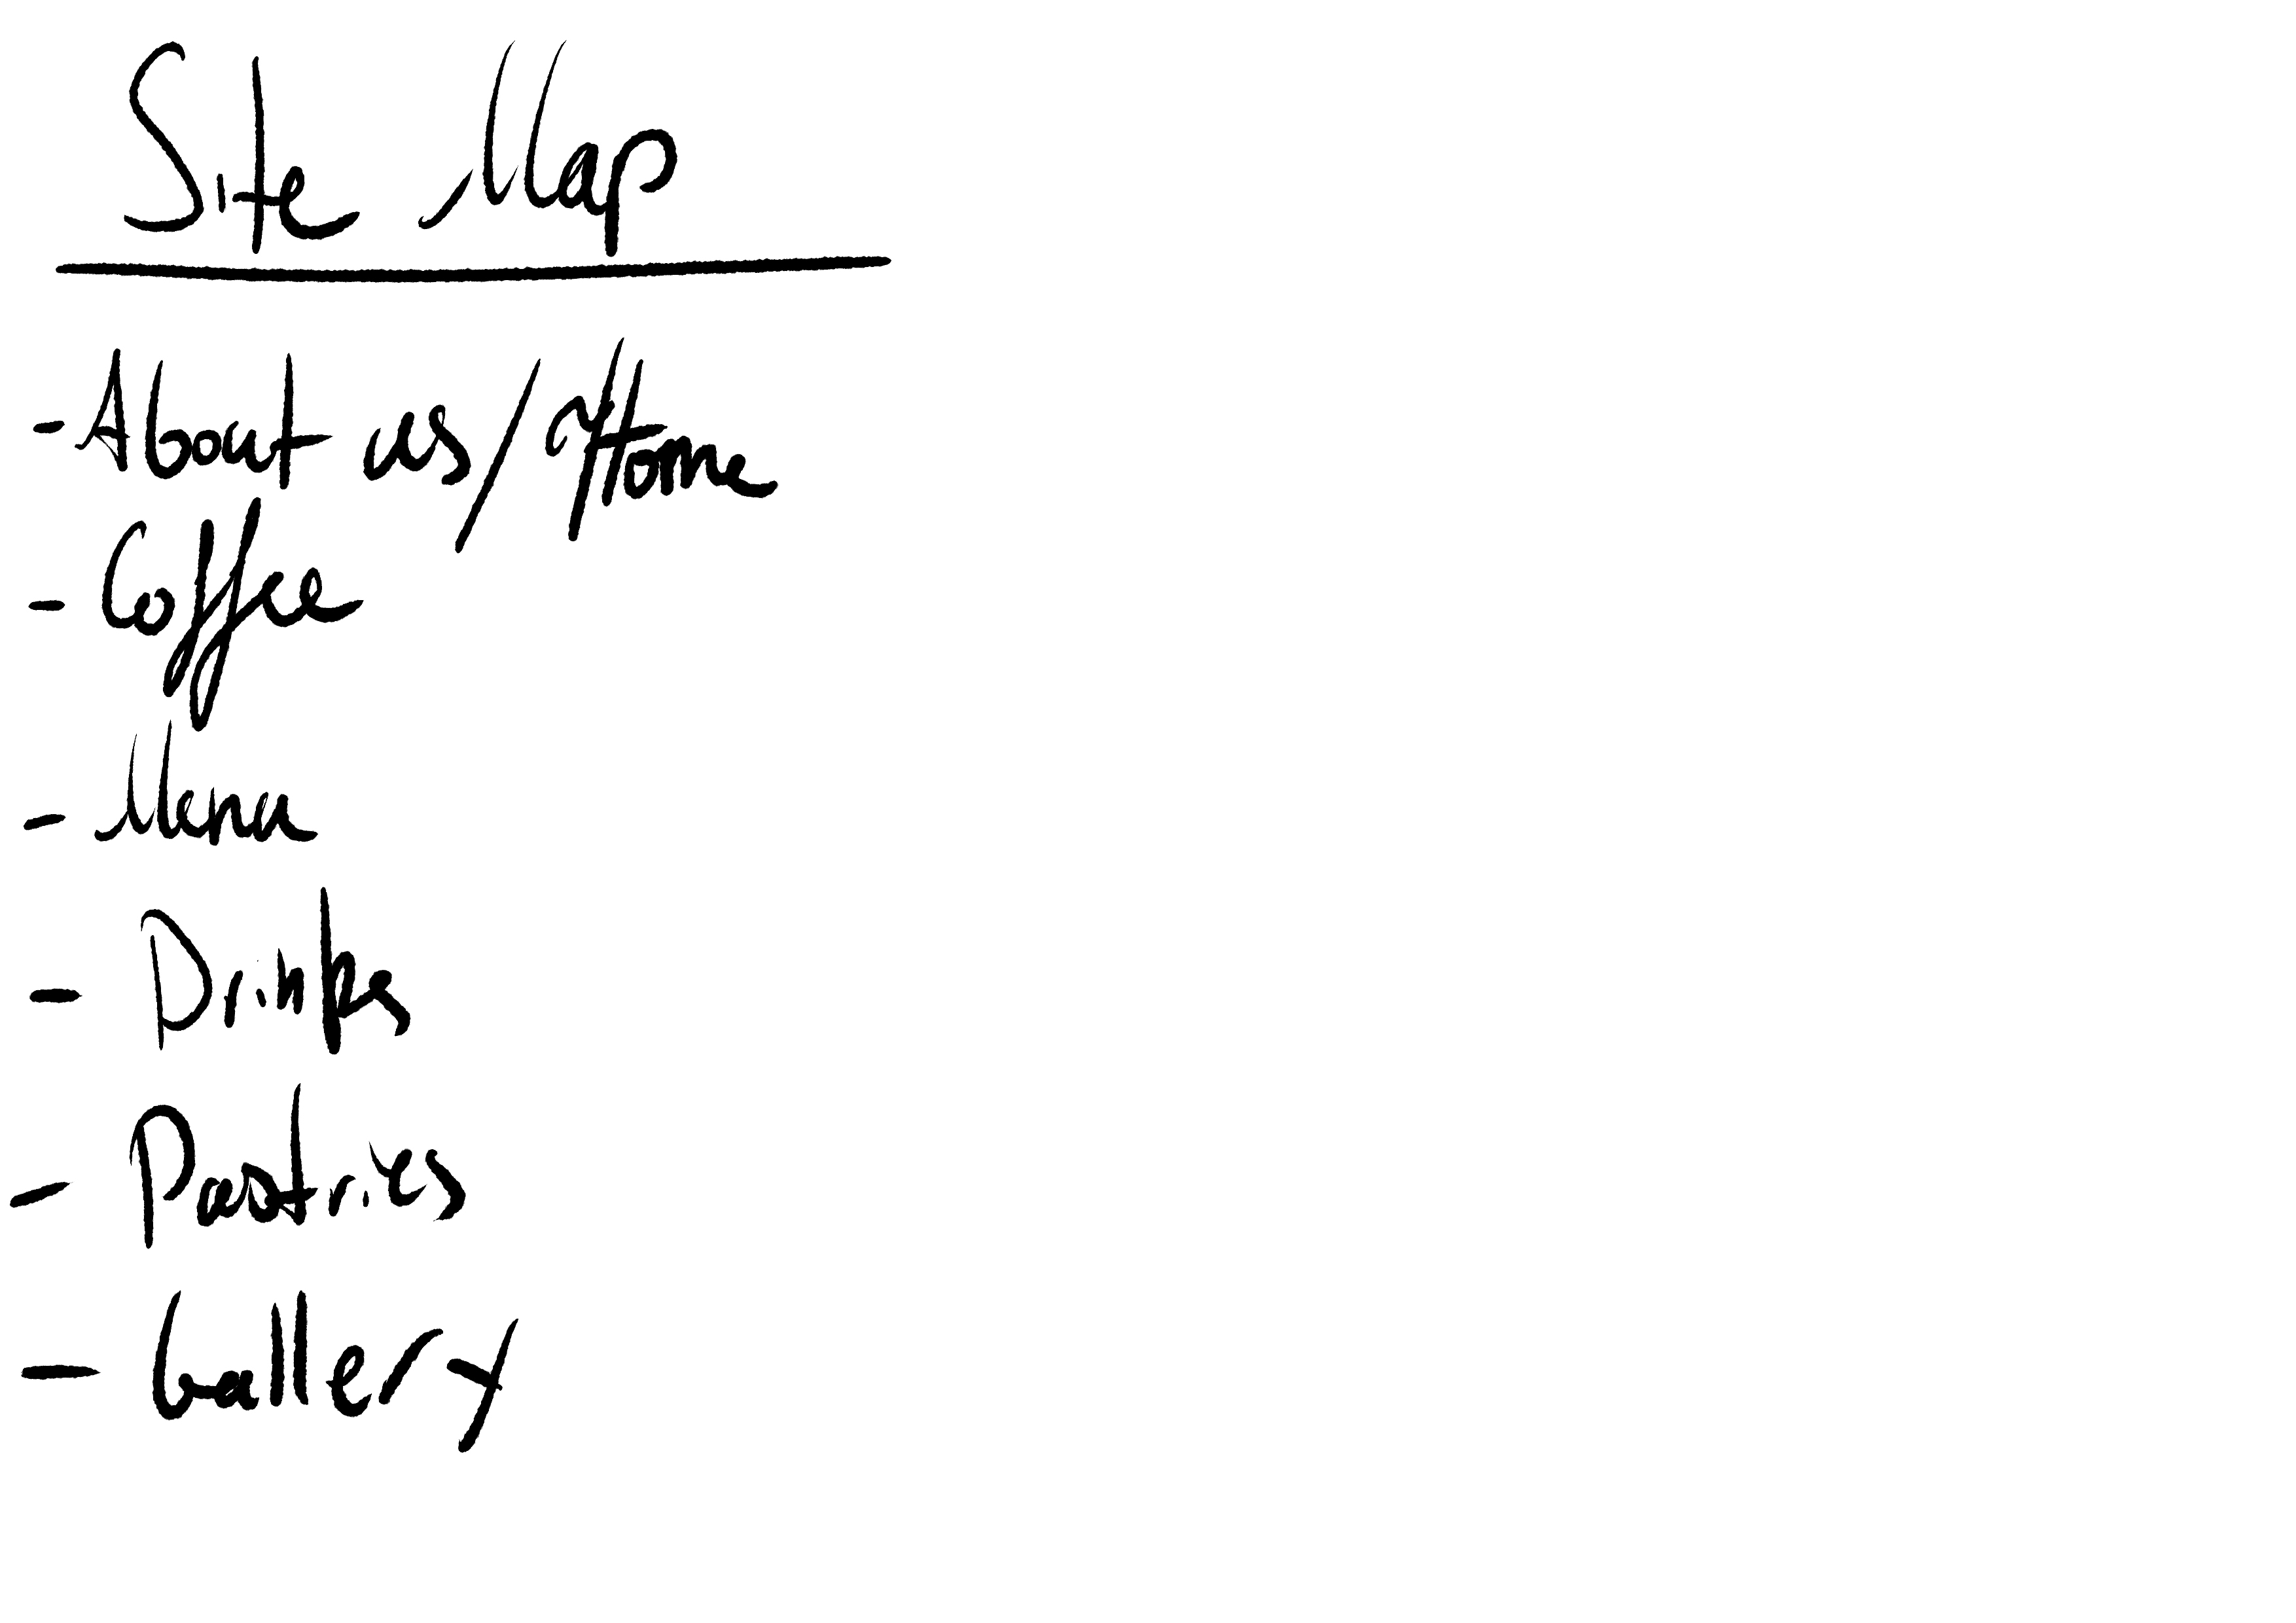 Site Map
- About us/Home
- Coffee
- Menu
- Drinks
- Pastries
- Gallery